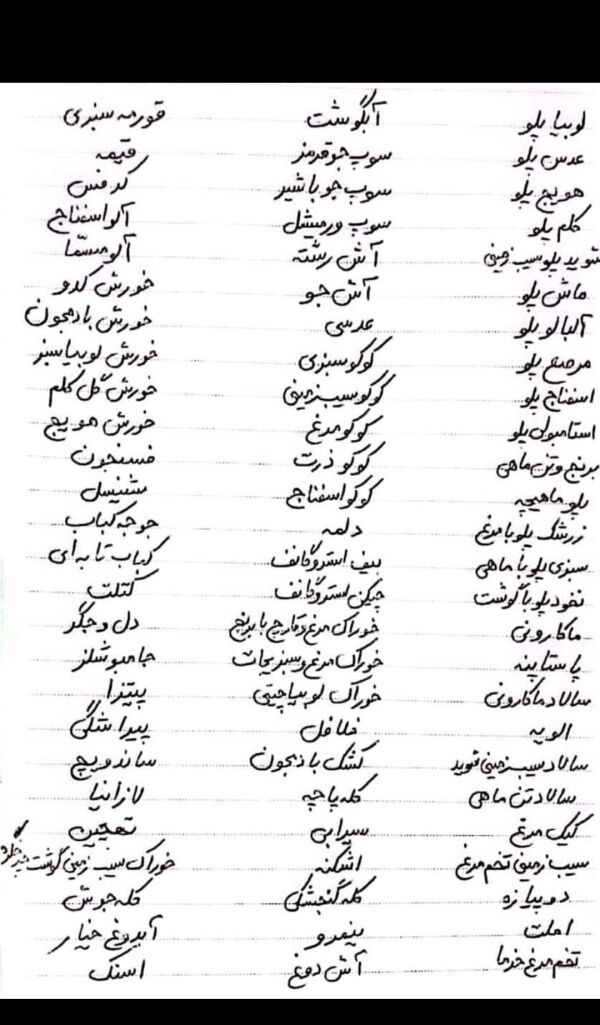 لوبیا پلو آبگوشت قورمه سبزی
عدس پلو سوپ جو قرمز قیمه
هویج پلو سوپ جو با شیر کرفس
کلم پلو سوپ ورمیشل آلو اسفناج
شوید پلو سیب زمینی آش رشته آلو مسمّا
ماش پلو آش جو خورش کدو
آلبالو پلو عدسی خورش بادمجون
مرصع پلو کوکو سبزی خورش لوبیا سبز
اسفناج پلو کوکو سیب زمینی خورش گل کلم
استامبولی پلو کوکو مرغ خورش هویج
برنج و تن ماهی کوکو ذرت فسنجون
پلو ماهیچه کوکو اسفناج شنیسل
زرشک پلو با مرغ دلمه جوجه کباب
سبزی پلو با ماهی بیف استروگانف کباب تابه ای
نخود پلو با گوشت چیکن استروگانف کتلت
ماکارونی خوراک مرغ و قارچ با برنج دل و جگر
پاستا پنه خوراک مرغ و سبزیجات
سالاد ماکارونی خوراک لوبیا چیتی پیتزا
الویه فلافل پیراشکی
سالاد سیب زمینی شوید کشک بادمجون ساندویچ
سالاد تن ماهی کله پاچه لازانیا
کیک مرغ سیرابی تهچین
سیب زمینی تخم مرغ اشکنه خوراک سیب زمینی گوشت
دوپیازه کله گنجشکی کله جوش
املت نیمرو آبدوغ خیار
تخم مرغ خرما آش دوغ اسنک